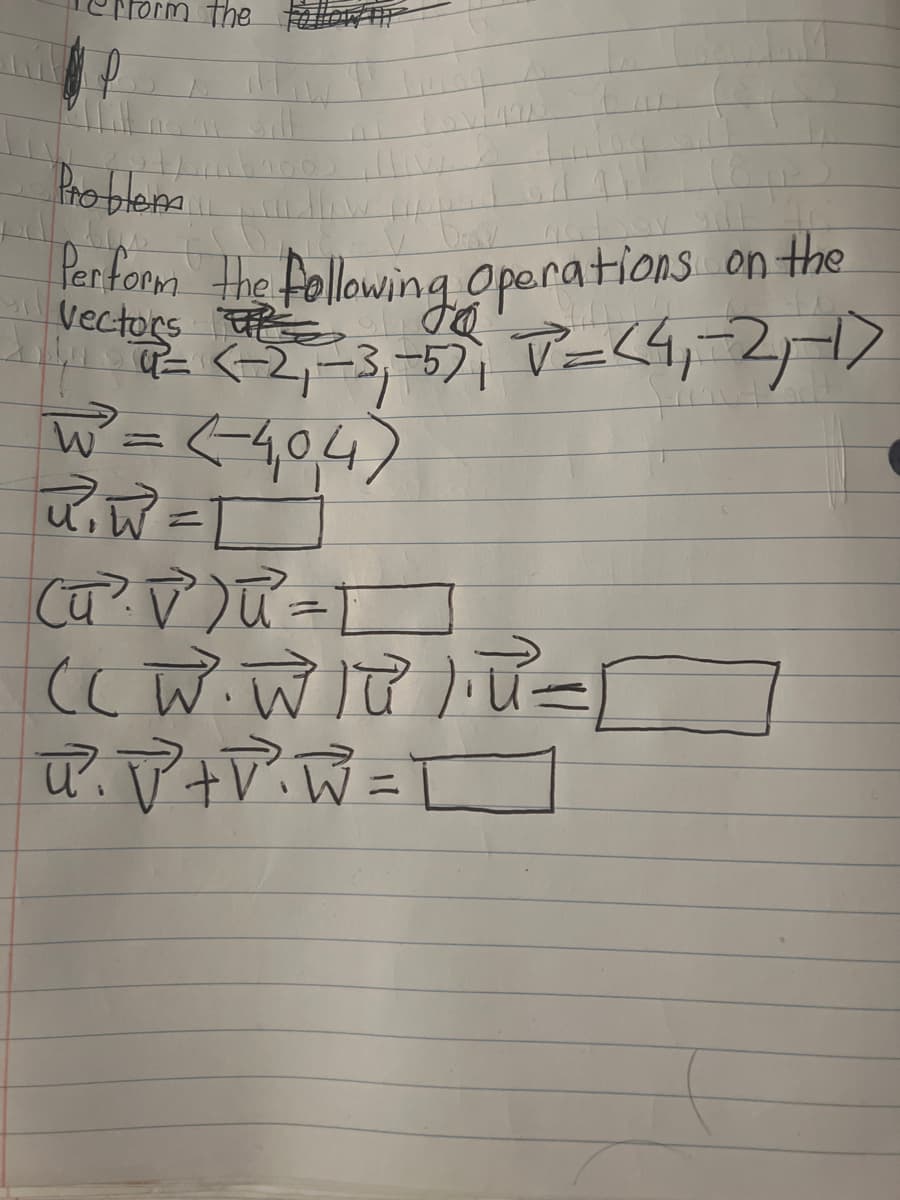 Perform the
P
Problem
Perform the following operations on the
vectors
u⃗= <-2,-3,-5>, v⃗=<4,-2,-1>
w⃗ = <-4,0,4>
u⃗.w⃗ =
(u⃗.v⃗)u⃗=
((w⃗.w⃗)u⃗).u⃗=
u⃗.v⃗+v⃗.w⃗ =